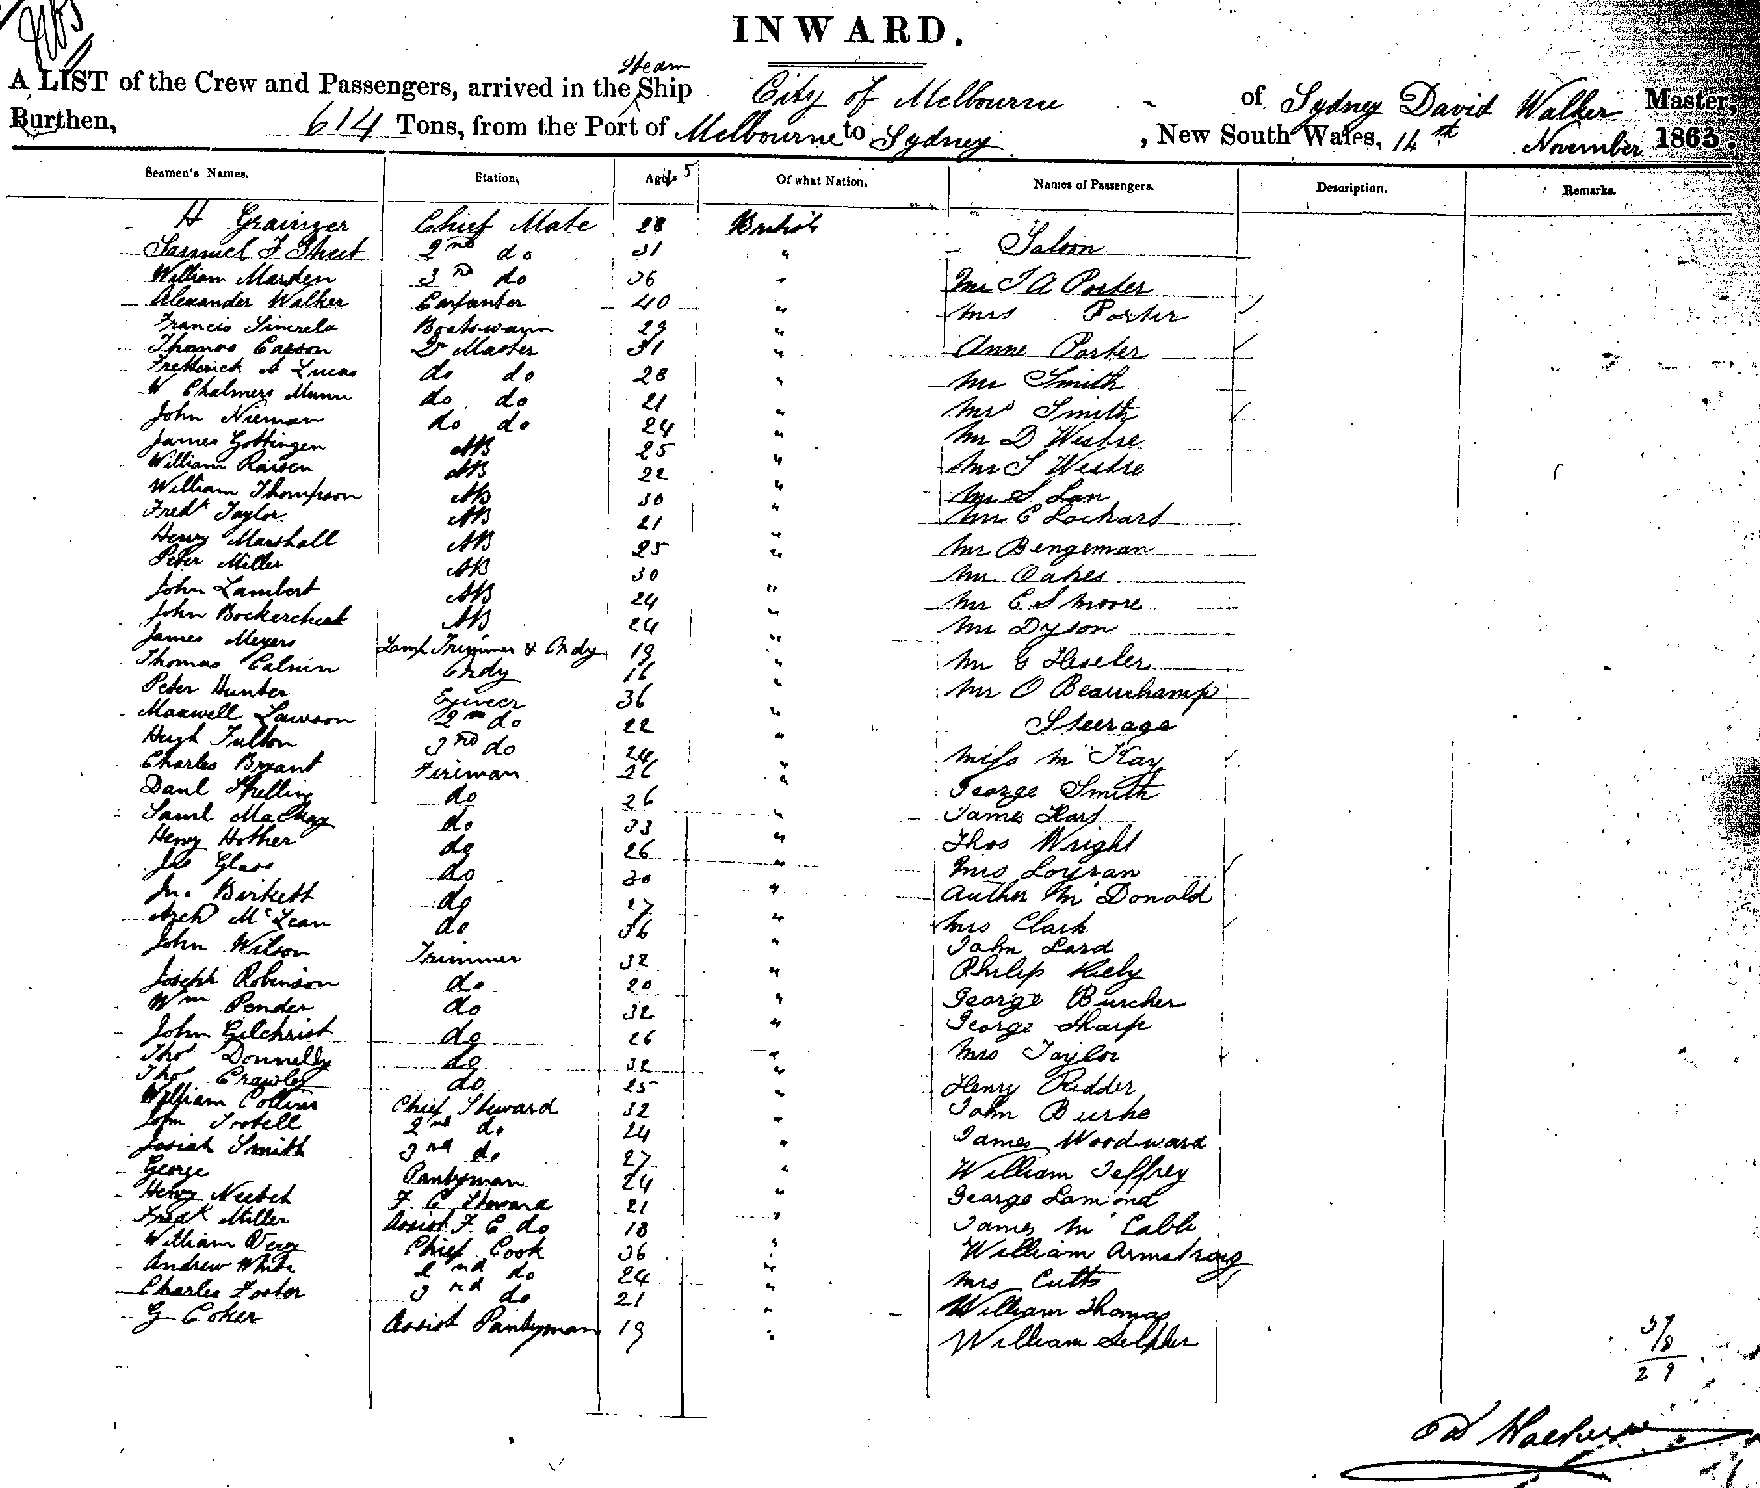 INWARD.
Steam
A LIST of the Crew and Passengers, arrived in the Ship City of Melbourne of Sydney David Walker Master,
Burthen, 614 Tons, from the Port of Melbourne to Sydney, New South Wales, November 1863.
Seamen's Names. Station, Age Of what Nation. Names of Passengers. Description. Remarks.
H Grainger Chief Mate 28 British
Samuel F 2nd do 31 " Saloon
William Marden 3rd do 36 " Mr J A Porter
Alexander Walker Carpanter 40 " Mrs Porter
Francis Boatswain 29 "
Thomas Carson Master 31 " Anne Porter
Frederick A Lucas do do 28 " Mr Smith
W Chalmers Munn do do 21 " Mrs Smith
John Nieman do do 24 " Mr D
James Gottingen AB 25 " Mr J
William Raison AB 22 " Mr S
William Thompson AB 30 " Mr C Lockart
Fredk Taylor AB 21 "
Henry Marshall AB 25 " Mr Bengeman
Peter Miller AB 30 Mr Oakes
John Lambert AB 24 " Mr C S Moore
John AB 24 " Mr Dyson
James Meyers Lamp Trimmer & Ordy 19 "
Thomas Calnin Ordy 16 " Mr G Heseler
Peter Hunter 36 " Mr O Beauchamp
Maxwell Lawson 2nd do 22 " Steerage
Hugh Fulton 3rd do 24 " Miss McKay
Charles Bryant Fireman 26 "
Danl do 26 George Smith
Saml Mackay do 33 " James
Henry Hother do 26 " Thos Wright
Jas Glass do 30 " Mrs
Jno Birkett do 27 " Author McDonald
Arch McLean do 36 " Mrs Clark
John Wilson Trimmer 32 " John Lard
Joseph Robinson do 20 " Philip Kiely
Wm Pender do 32 " George Burcher
John Gilchrist do 26 " George Sharp
Thos Donnelly do 32 " Mrs Taylor
Thos Crawley do 25 " Henry Redder
William Collins Chief Steward 32 " John Burke
John Tootell 2nd do 24 James Woodward
Josiah Smith 3rd do 27 " William Jeffrey
George Pantryman 24 " George Lamond
Henry F. C. Steward 21 "
Fredk Miller Assist F C do 18 " James McCable
William Very Chief Cook 36 " William Armstrong
Andrew White 2nd do 24 " Mrs Cutts
Charles Foster 3rd do 21 " William Thomas
G Coker Assist Pantryman 19 " William
37
/8
29
D Walker